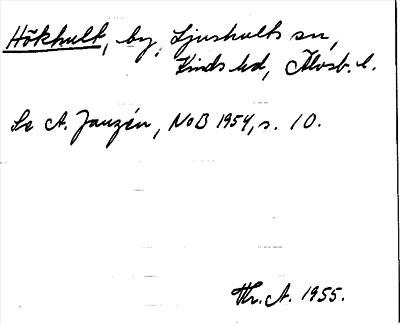 Hökhult, by, Ljushults sn,
Kinds hd, Älvsb. l.
Se A. Janzén, NoB 1954, s. 10.
Hr. A. 1955.